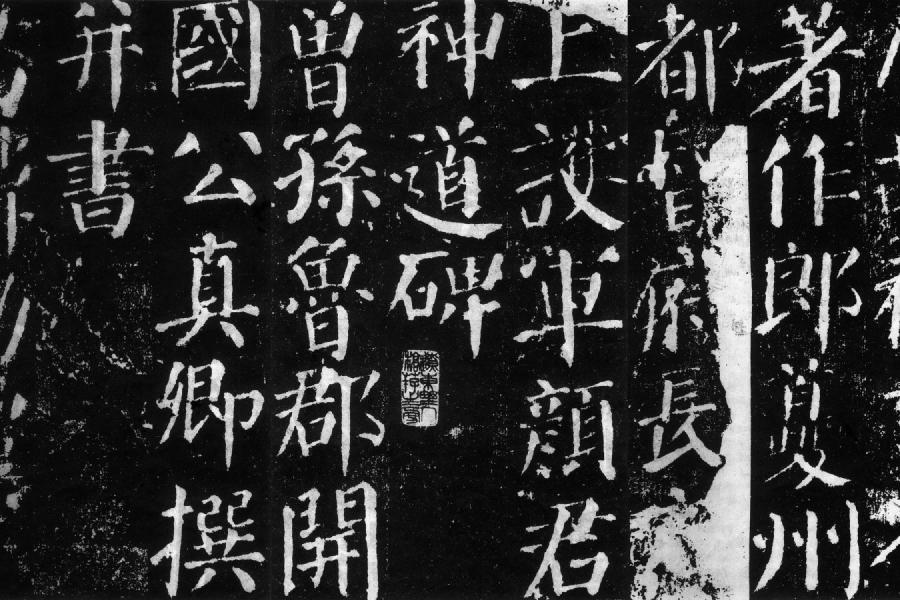 著作郎夔州
都督府長
上護軍顏君
神道碑
曾孫魯郡開
國公真卿撰
并書